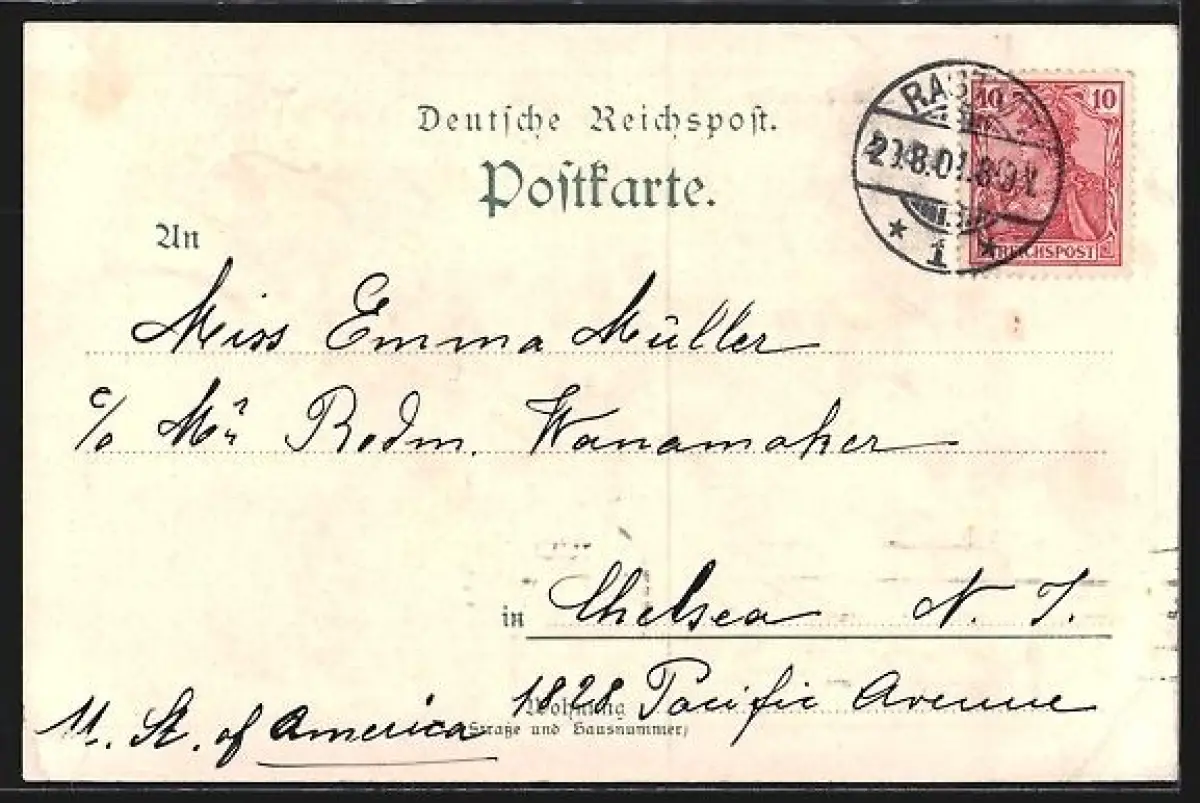 Deutsche Reichspost.
Postkarte.
10 10
REICHSPOST
8.01.
* 1 *
An
Miss Emma Müller
c/o Mr. Rodm. Wanamaker
in Chelsea N. J.
1828 Pacific Avenue
Wohnung
(Straße und Hausnummer)
U. St. of America